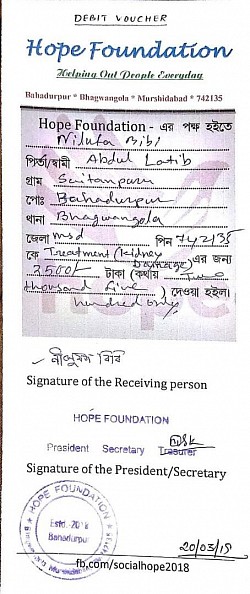 DEBIT VOUCHER
Hope Foundation
Helping Out People Everyday
Bahadurpur * Bhagwangola * Murshidabad * 742135
Hope Foundation - এর পক্ষ হইতে
Niluta Bibi
পিতা/স্বামী Abdul Latib
গ্রাম
পোঃ Bahadurpur
থানা Bhagwangola
জেলা msd পিন 742135
কে Treatment (Kidney Damage) এর জন্য
2500/- টাকা (কথায় Two
thousand five
hundred only ) দেওয়া হইল।
বিবি
Signature of the Receiving person
HOPE FOUNDATION
President Secretary Treasurer
Signature of the President/Secretary
HOPE FOUNDATION
Estd.-2018
Bahadurpur
20/03/19
fb.com/socialhope2018